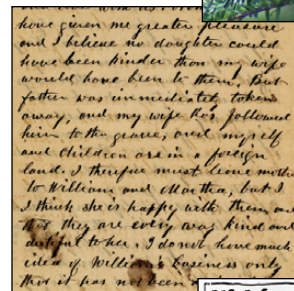 have given me greater pleasure
and I believe no daughter could
have been kinder than my wife
would have been to them, But
father was immediately taken
away, and my wife has followed
him to the grave, and myself
and children are in a foreign
land. I therefore must leave mother
to William and Martha, but I
I think she is happy with them and
that they are every way kind and
dutiful to her. I do not have much
idea of William's business only
that it has not been